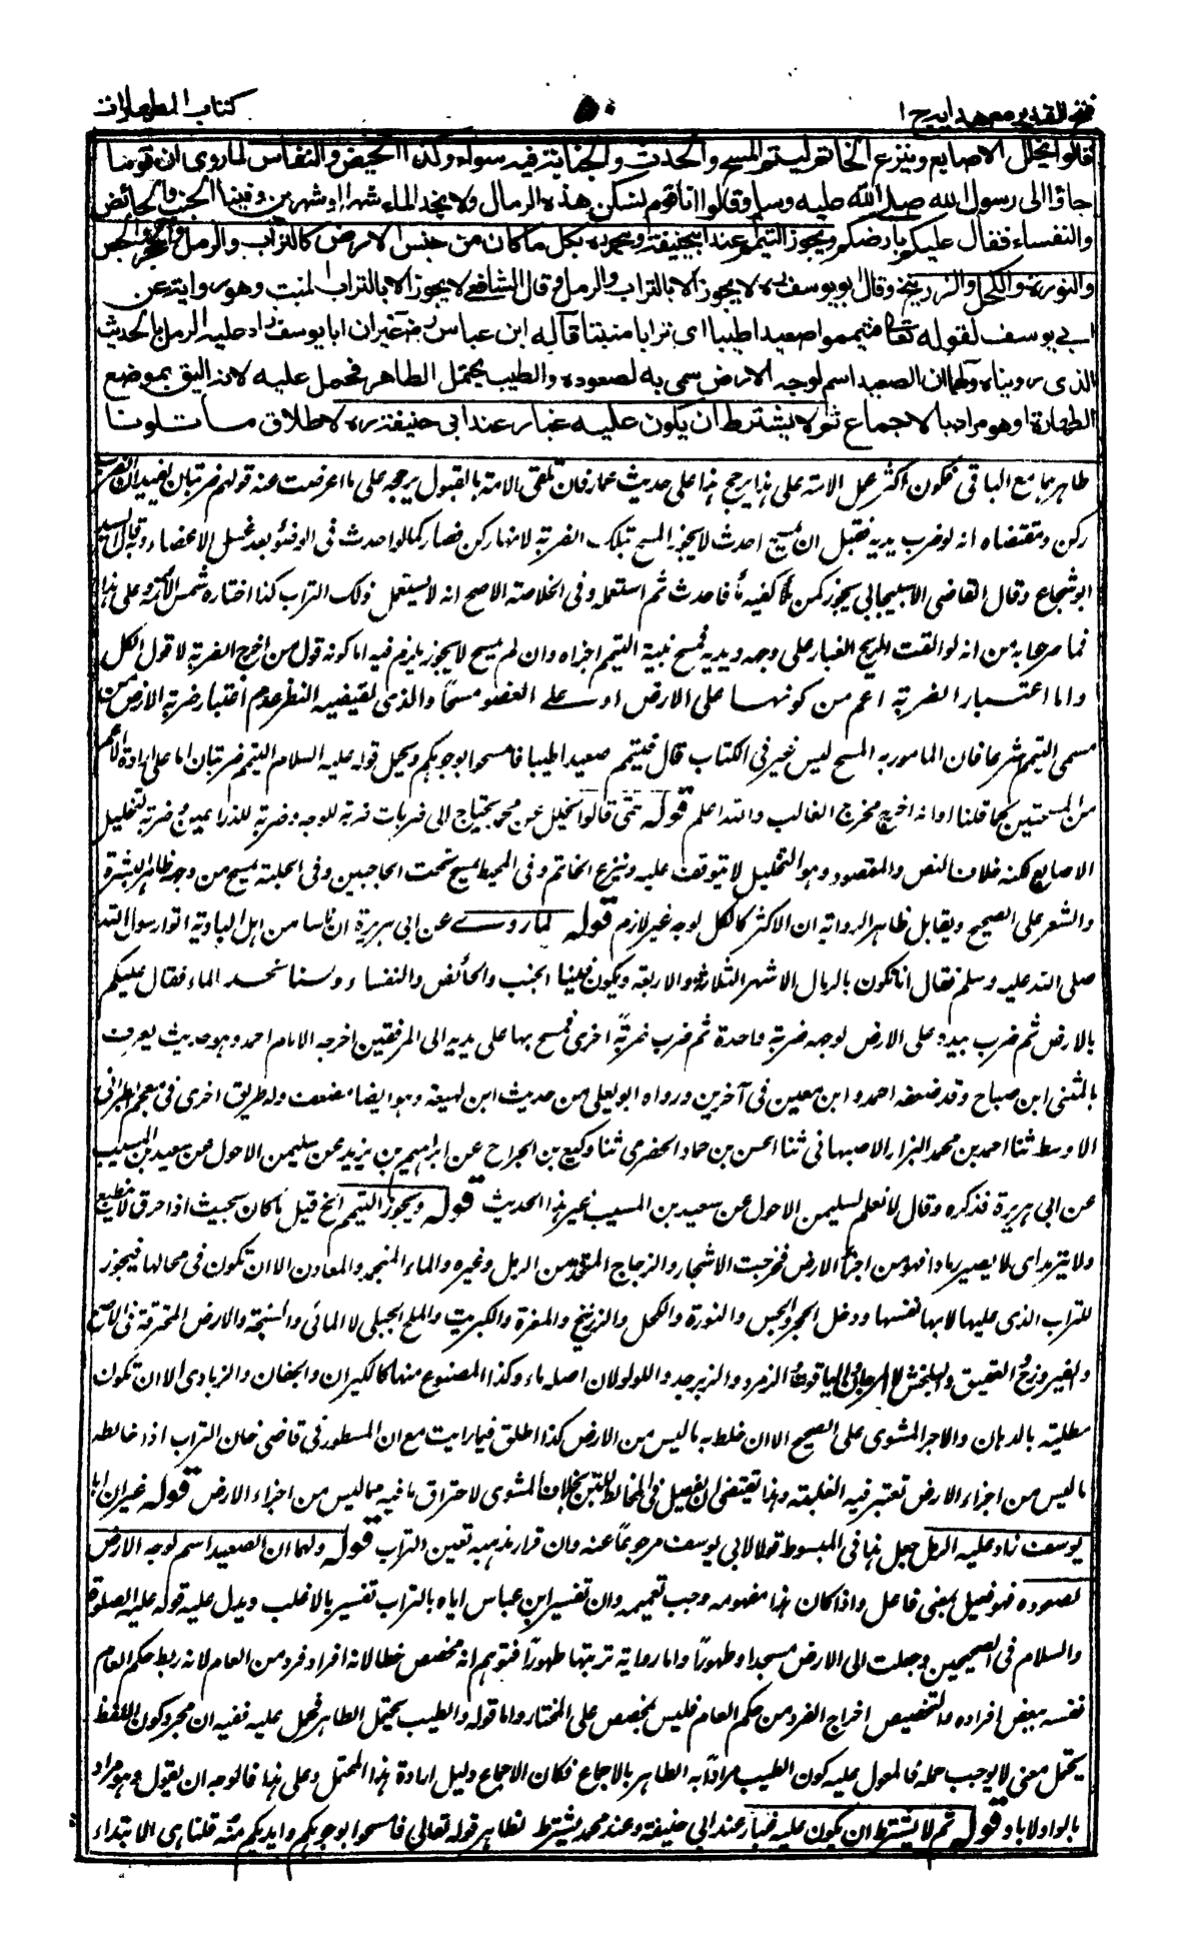 فتح القدير مع هدايه ج ١
٥٠
كتاب الطهارات
قالوا يخلل الاصابع وينزع الخاتم ليتم المسح والحدث والجنابة فيه سواء وكذا الحيض والنفاس لما روى ان قوما
جاؤا الى رسول الله صلى الله عليه وسلم وقالوا انا قوم نسكن هذه الرمال ولا نجد الماء شهرا او شهرين وفينا الجنب والحائض
والنفساء فقال عليكم بارضكم ويجوز التيمم عند ابيحنيفة ومحمد ره بكل ما كان من جنس الارض كالتراب والرمل والحجر والجص
والنورة والكحل والزرنيخ وقال ابو يوسف ره لا يجوز الا بالتراب والرمل وقال الشافعي لا يجوز الا بالتراب المنبت وهو رواية عن
ابي يوسف لقوله تعا فتيمموا صعيدا طيبا اى ترابا منبتا قاله ابن عباس رض غير ان ابا يوسف زاد عليه الرمل بالحديث
الذى رويناه ولهما ان الصعيد اسم لوجه الارض سمى به لصعوده والطيب يحتمل الطاهر فحمل عليه لانه اليق بموضع
الطهارة او هو مراد بالاجماع ثم لا يشترط ان يكون عليه غبار عند ابى حنيفة ره لاطلاق ما تلونا
ظاهر بما مع الباقى فيكون اكثر عمل الامة على هذا يرجح هذا على حديث عمار فان تلقى الامة بالقبول يرجحه على ما اعرضت عنه قولهم ضربتان يفيد ان الضرب
ركن ومقتضاه انه لو ضرب يديه فقبل ان يمسح احدث لا يجوز المسح بتلك الضربة لانها ركن فصار كما لو احدث فى الوضوء بعد غسل الاعضاء وقال السيد
ابو شجاع وقال القاضى الاسبيجابي يجوز كمن ملأ كفيه ماء فاحدث ثم استعمله وفى الخلاصة الاصح انه لا يستعمل ذلك التراب كذا اختاره شمس الائمة وعلى هذا
فما صرحوا به من انه لو القت الريح الغبار على وجهه ويديه فمسح بنية التيمم اجزاه وان لم يمسح لا يجوز يلزم فيه اما كونه قول من اخرج الضربة لا قول الكل
واما اعتبار الضربة اعم من كونها على الارض او على العضو مسحا والذى يقتضيه النظر عدم اعتبار ضربة الارض من
مسمى التيمم شرعا فان المامور به المسح ليس غير فى الكتاب قال فتيمموا صعيدا طيبا فامسحوا بوجوهكم ويحمل قوله عليه السلام التيمم ضربتان اما على ارادة الاعم
من المسحتين كما قلنا او انه اخرج مخرج الغالب والله اعلم قوله حتى قالوا يخلل عن محمد يحتاج الى ضربات ضربة للوجه وضربة للذراعين وضربة لتخليل
الاصابع لكنه خلاف النص والمقصود وهو التخليل لا يتوقف عليه وينزع الخاتم وفى المحيط يمسح تحت الحاجبين وفى الحلية يمسح من وجهه ظاهر البشرة
والشعر على الصحيح ويقابل ظاهر الرواية ان الاكثر كالكل لوجه غير لازم قوله لما روى عن ابى هريرة ان ناسا من اهل البادية اتوا رسول الله
صلى الله عليه وسلم فقال انا نكون بالرمال الاشهر الثلاثة والاربعة ويكون فينا الجنب والحائض والنفساء ولسنا نجد الماء فقال عليكم
بالارض ثم ضرب بيده على الارض لوجهه ضربة واحدة ثم ضرب ضربة اخرى فمسح بها على يديه الى المرفقين اخرجه الامام احمد وهو حديث يعرف
بالمثنى ابن صباح وقد ضعفه احمد وابن معين فى آخرين ورواه ابو يعلى من حديث ابن لهيعة وهو ايضا مضعف وله طريق اخرى فى معجم الطبرانى
الاوسط ثنا احمد بن محمد البزار الاصبهانى ثنا الحسن بن حماد الحضرمى ثنا وكيع بن الجراح عن ابراهيم بن يزيد عن سليمن الاحول عن سعيد بن المسيب
عن ابى هريرة فذكره وقال لا نعلم لسليمن الاحول عن سعيد بن المسيب غير هذا الحديث قوله ويجوز التيمم الخ قيل ما كان بحيث اذا حرق لا ينطبع
ولا يترمد اى لا يصير رمادا فهو من اجزاء الارض فخرجت الاشجار والزجاج المتخذ من الرمل وغيره والماء المنجمد والمعادن الا ان تكون فى محالها فيجوز
للتراب الذى عليها لا بها نفسها ودخل الحجر والجص والنورة والكحل والزرنيخ والمغرة والكبريت والملح الجبلى لا المائى والسبخة والارض المحترقة فى الاصح
والفيروزج والعقيق والبلخش لا المرجان والياقوت والزمرد والزبرجد واللؤلؤ لان اصله ماء وكذا المصنوع منها كالكيزان والجفان والزبادى الا ان تكون
مطلية بالدهان والاجر المشوى على الصحيح الا ان خلط به ما ليس من الارض كذا اطلق فيما رايت مع ان المسطور فى قاضى خان التراب اذا خالطه
ما ليس من اجزاء الارض تعتبر فيه الغلبة وهذا يقتضى ان يفصل فى المخالط للبن بخلاف المشوى لاحتراق ما فيه مما ليس من اجزاء الارض قوله غير ان ابا
يوسف زاد عليه الرمل جعل هذا فى المبسوط قولا لابى يوسف مرجوعا عنه وان قرار مذهبه تعين التراب قوله ولهما ان الصعيد اسم لوجه الارض
لصعوده فهو فعيل بمعنى فاعل واذا كان هذا مفهومه وجب تعميمه وان تفسير ابن عباس اياه بالتراب تفسير بالاغلب ويدل عليه قوله عليه الصلوة
والسلام فى الصحيحين وجعلت لى الارض مسجدا وطهورا واما رواية تربتها طهورا فتوهم انه مخصص خطا لانه افراد فرد من العام لانه ربط حكم العام
نفسه ببعض افراده والتخصيص اخراج الفرد من حكم العام فليس بمخصص على المختار واما قوله والطيب يحتمل الطاهر فحمل عليه ففيه ان مجرد كون اللفظ
يحتمل معنى لا يوجب حمله فالمعول عليه كون الطيب مرادا به الطاهر بالاجماع فكان الاجماع دليل ارادة هذا المحتمل وعلى هذا فالوجه ان يقول وهو مراد
بالواو لا باو قوله ثم لا يشترط ان يكون عليه غبار عند ابى حنيفة وعند محمد يشترط لظاهر قوله تعالى فامسحوا بوجوهكم وايديكم منه قلنا هى الابتداء